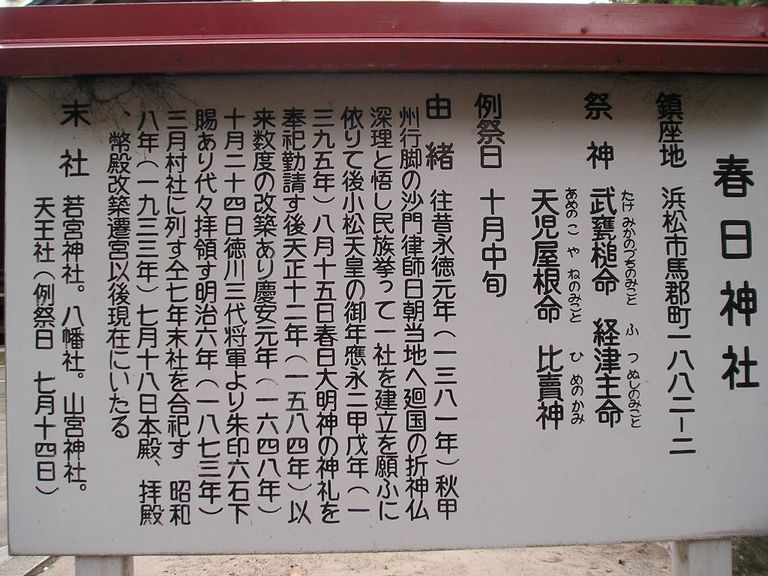 春日神社
鎮座地 浜松市馬郡町一八八二―二
祭神 武甕槌命 経津主命
たけみかのづちのみこと ふつぬしのみこと
天児屋根命 比賣神
あめのこやねのみこと ひめのかみ
例祭日 十月中旬
由緒 往昔永徳元年(一三八一年)秋甲
州行脚の沙門律師日朝当地へ廻国の折神仏
深理と悟し民族挙って一社を建立を願ふに
依りて後小松天皇の御年應永二甲戊年(一
三九五年)八月十五日春日大明神の神礼を
奉祀勤請す後天正十二年(一五八四年)以
来数度の改築あり慶安元年(一六四八年)
十月二十四日徳川三代将軍より朱印六石下
賜あり代々拝領す明治六年(一八七三年)
三月村社に列す仝七年末社を合祀す 昭和
八年(一九三三年)七月十八日本殿、拝殿
、幣殿改築遷宮以後現在にいたる
末社 若宮神社。八幡社。山宮神社。
天王社(例祭日 七月十四日)